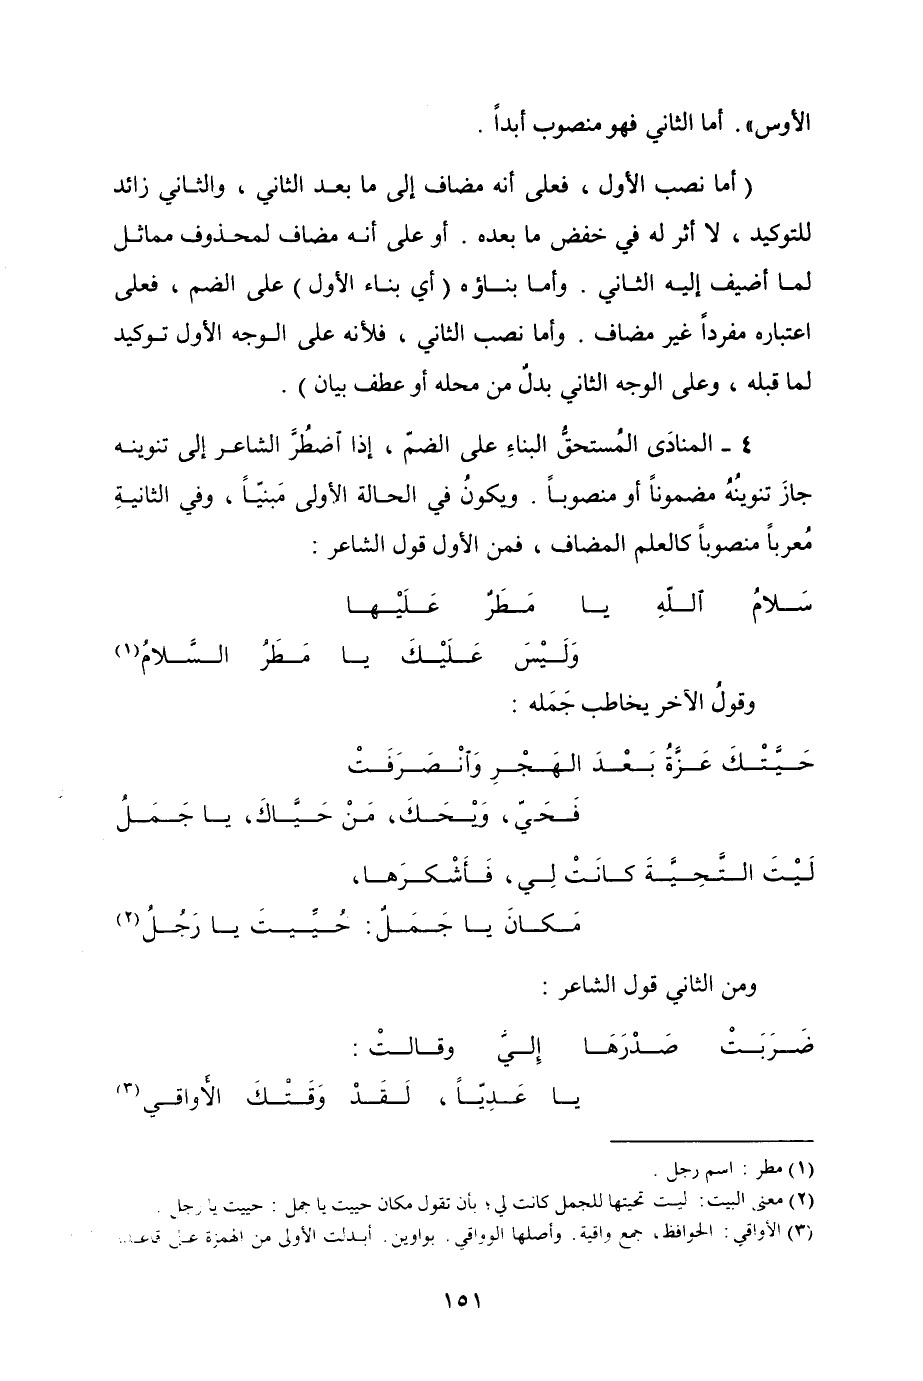 الأوس» . أما الثاني فهو منصوب أبداً .
( أما نصب الأول ، فعلى أنه مضاف إلى ما بعد الثاني ، والثاني زائد
للتوكيد ، لا أثر له في خفض ما بعده . أو على أنه مضاف لمحذوف مماثل
لما أضيف إليه الثاني . وأما بناؤه ( أي بناء الأول ) على الضم ، فعلى
اعتباره مفرداً غير مضاف . وأما نصب الثاني ، فلأنه على الوجه الأول توكيد
لما قبله ، وعلى الوجه الثاني بدلٌ من محله أو عطف بيان ) .
٤ ـ المنادَى المُستحقُّ البناءِ على الضمّ ، إذا ٱضطُرَّ الشاعر إلى تنوينه
جازَ تنوينُهُ مضموناً أو منصوباً . ويكونُ في الحالة الأولى مَبنيّاً ، وفي الثانيةِ
مُعرباً منصوباً كالعلم المضاف ، فمن الأول قول الشاعر :
سَلامُ ٱللّهِ يا مَطَرٌ عَلَيْها
وَلَيْسَ عَلَيْكَ يا مَطَرُ السَّلامُ(١)
وقولُ الآخر يخاطب جَمَله :
حَيَّتْكَ عَزَّةُ بَعْدَ الهَجْرِ وَٱنْصَرَفَتْ
فَحَيِّ، وَيْحَكَ، مَنْ حَيَّاكَ، يا جَمَلُ
لَيْتَ التَّحِيَّةَ كانَتْ لِي، فَأَشْكُرَها،
مَكانَ يا جَمَلٌ: حُيِّيتَ يا رَجُلُ(٢)
ومن الثاني قول الشاعر :
ضَرَبَتْ صَدْرَهَا إِليَّ وقالتْ :
يا عَدِيّاً ، لَقَدْ وَقَتْكَ الأَواقي(٣)
(١) مطر : اسم رجل .
(٢) معنى البيت : ليت تحيتها للجمل كانت لي؛ بأن تقول مكان حييت يا جمل : حييت يا رجل .
(٣) الأواقي : الحوافظ، جمع واقية. وأصلها الوواقي. بواوين. أبدلت الأولى من الهمزة على قاعدة
١٥١